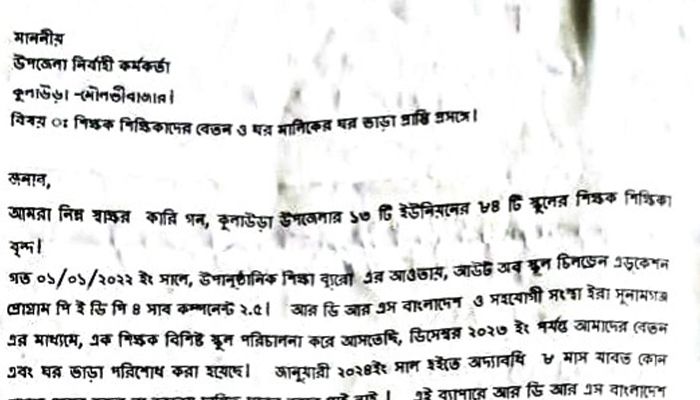 মাননীয়
উপজেলা নির্বাহী কর্মকর্তা
কুলাউড়া -মৌলভীবাজার।
বিষয় ঃ শিক্ষক শিক্ষিকাদের বেতন ও ঘর মালিকের ঘর ভাড়া প্রাপ্তি প্রসঙ্গে।
জনাব,
আমরা নিম্ন স্বাক্ষর কারি গন, কুলাউড়া উপজেলার ১৩ টি ইউনিয়নের ৮৪ টি স্কুলের শিক্ষক শিক্ষিকা
বৃন্দ।
গত ০১/০১/২০২২ ইং সালে, উপানুষ্ঠানিক শিক্ষা ব্যুরো এর আওতায়, আউট অব স্কুল চিলড্রেন এডুকেশন
প্রোগ্রাম পি ই ডি পি ৪ সাব কম্পনেন্ট ২.৫। আর ডি আর এস বাংলাদেশ ও সহযোগী সংস্থা ইরা সুনামগঞ্জ
এর মাধ্যমে, এক শিক্ষক বিশিষ্ট স্কুল পরিচালনা করে আসতেছি, ডিসেম্বর ২০২৩ ইং পর্যন্ত আমাদের বেতন
এবং ঘর ভাড়া পরিশোধ করা হয়েছে। জানুয়ারী ২০২৪ইং সাল হইতে অদ্যাবধি ৮ মাস যাবত কোন
এই ব্যাপারে আর ডি আর এস বাংলাদেশ